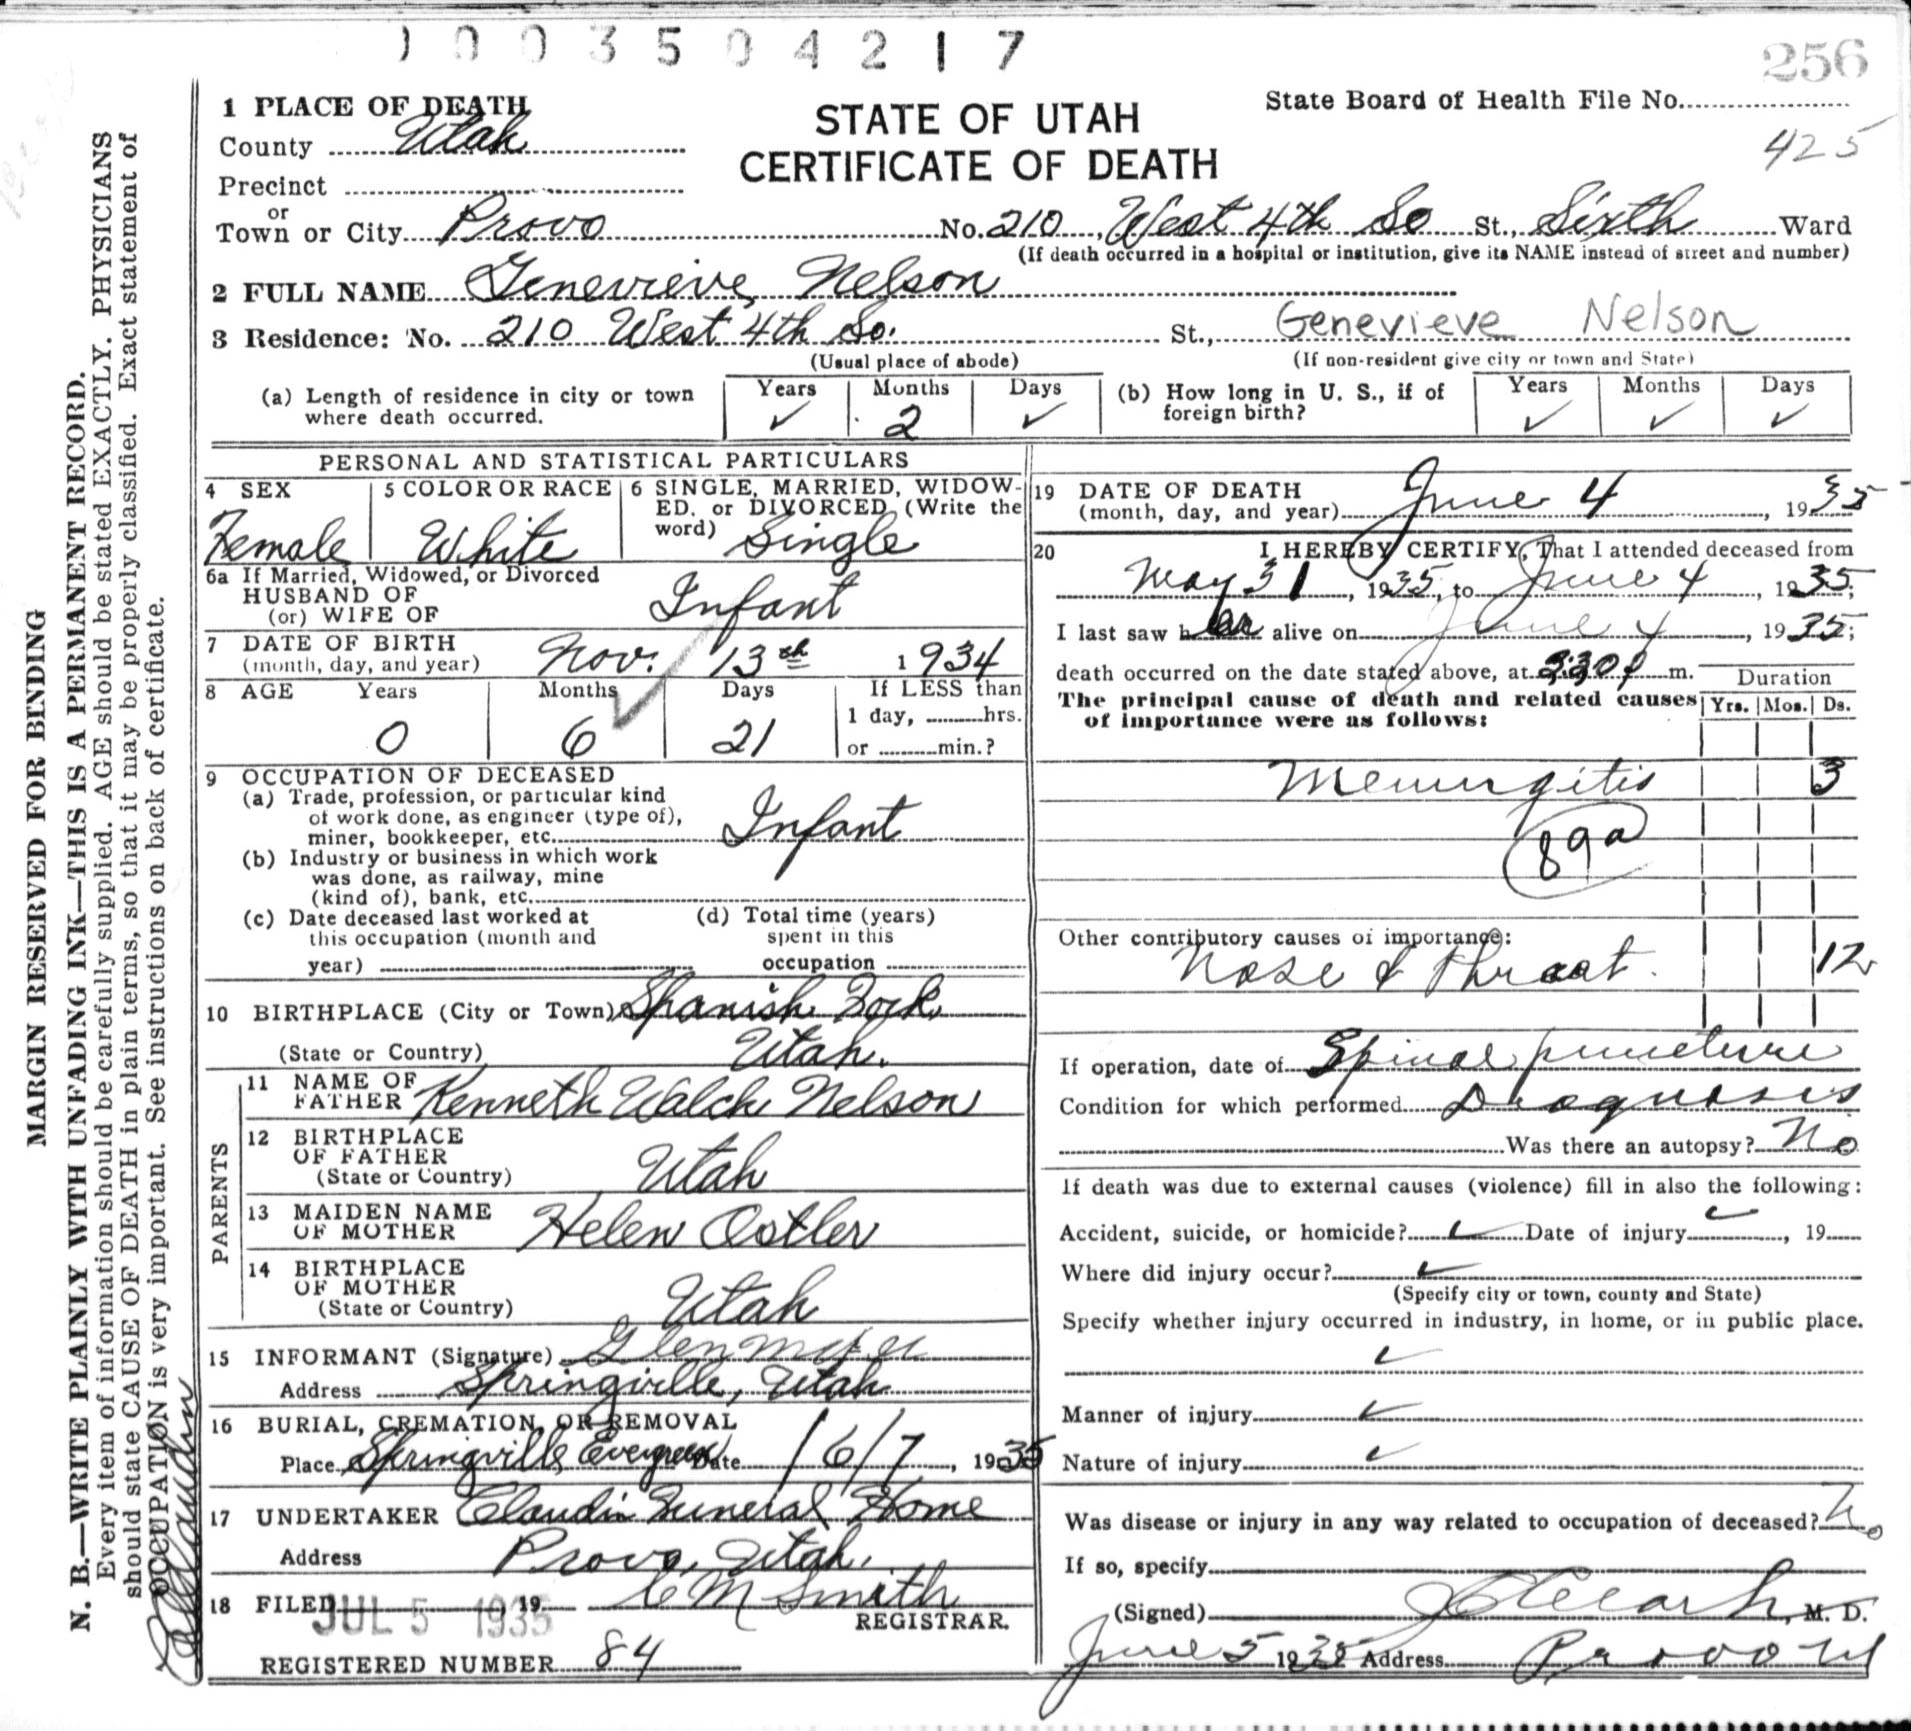 1003504217
256
1 PLACE OF DEATH
STATE OF UTAH
CERTIFICATE OF DEATH
State Board of Health File No.
425
County Utah
Precinct
or
Town or City Provo No. 210 West 4th So St., Sixth Ward
(If death occurred in a hospital or institution, give its NAME instead of street and number)
2 FULL NAME Genevieve Nelson
3 Residence: No. 210 West 4th So. St., Genevieve Nelson
(Usual place of abode) (If non-resident give city or town and State)
(a) Length of residence in city or town where death occurred. Years ✓ Months 2 Days ✓
(b) How long in U. S., if of foreign birth? Years ✓ Months ✓ Days ✓
PERSONAL AND STATISTICAL PARTICULARS
4 SEX Female
5 COLOR OR RACE White
6 SINGLE, MARRIED, WIDOW-
ED, or DIVORCED (Write the
word) Single
6a If Married, Widowed, or Divorced
HUSBAND OF
(or) WIFE OF Infant
7 DATE OF BIRTH
(month, day, and year) Nov. 13th 1934
8 AGE Years Months Days If LESS than
1 day, hrs.
0 6 21 or min.?
9 OCCUPATION OF DECEASED
(a) Trade, profession, or particular kind
of work done, as engineer (type of),
miner, bookkeeper, etc. Infant
(b) Industry or business in which work
was done, as railway, mine
(kind of), bank, etc.
(c) Date deceased last worked at
this occupation (month and
year)
(d) Total time (years)
spent in this
occupation
10 BIRTHPLACE (City or Town) Spanish Fork
(State or Country) Utah.
PARENTS
11 NAME OF
FATHER Kenneth Walch Nelson
12 BIRTHPLACE
OF FATHER
(State or Country) Utah
13 MAIDEN NAME
OF MOTHER Helen Ostler
14 BIRTHPLACE
OF MOTHER
(State or Country) Utah
15 INFORMANT (Signature) Glen
Address Springville, Utah
16 BURIAL, CREMATION, OR REMOVAL
Place Springville Evergreen Date 6/7, 1935
17 UNDERTAKER Claudin Funeral Home
Address Provo, Utah.
18 FILED JUL 5 1935 19 C M Smith
REGISTRAR.
REGISTERED NUMBER 84
19 DATE OF DEATH
(month, day, and year) June 4, 1935
20 I HEREBY CERTIFY, That I attended deceased from
May 31, 1935, to June 4, 1935;
I last saw her alive on June 4, 1935;
death occurred on the date stated above, at 3:30 P m.
Duration
The principal cause of death and related causes
of importance were as follows: Yrs. Mos. Ds.
Meningitis 3
89a
Other contributory causes of importance:
Nose & throat. 12
If operation, date of Spinal puncture
Condition for which performed Diagnosis
Was there an autopsy? No
If death was due to external causes (violence) fill in also the following:
Accident, suicide, or homicide? ✓ Date of injury ✓, 19
Where did injury occur? ✓
(Specify city or town, county and State)
Specify whether injury occurred in industry, in home, or in public place.
✓
Manner of injury ✓
Nature of injury ✓
Was disease or injury in any way related to occupation of deceased? No
If so, specify
(Signed) M. D.
June 5 1935 Address Provo Ut
MARGIN RESERVED FOR BINDING
N. B.—WRITE PLAINLY WITH UNFADING INK—THIS IS A PERMANENT RECORD.
Every item of information should be carefully supplied. AGE should be stated EXACTLY. PHYSICIANS
should state CAUSE OF DEATH in plain terms, so that it may be properly classified. Exact statement of
OCCUPATION is very important. See instructions on back of certificate.
Claudin